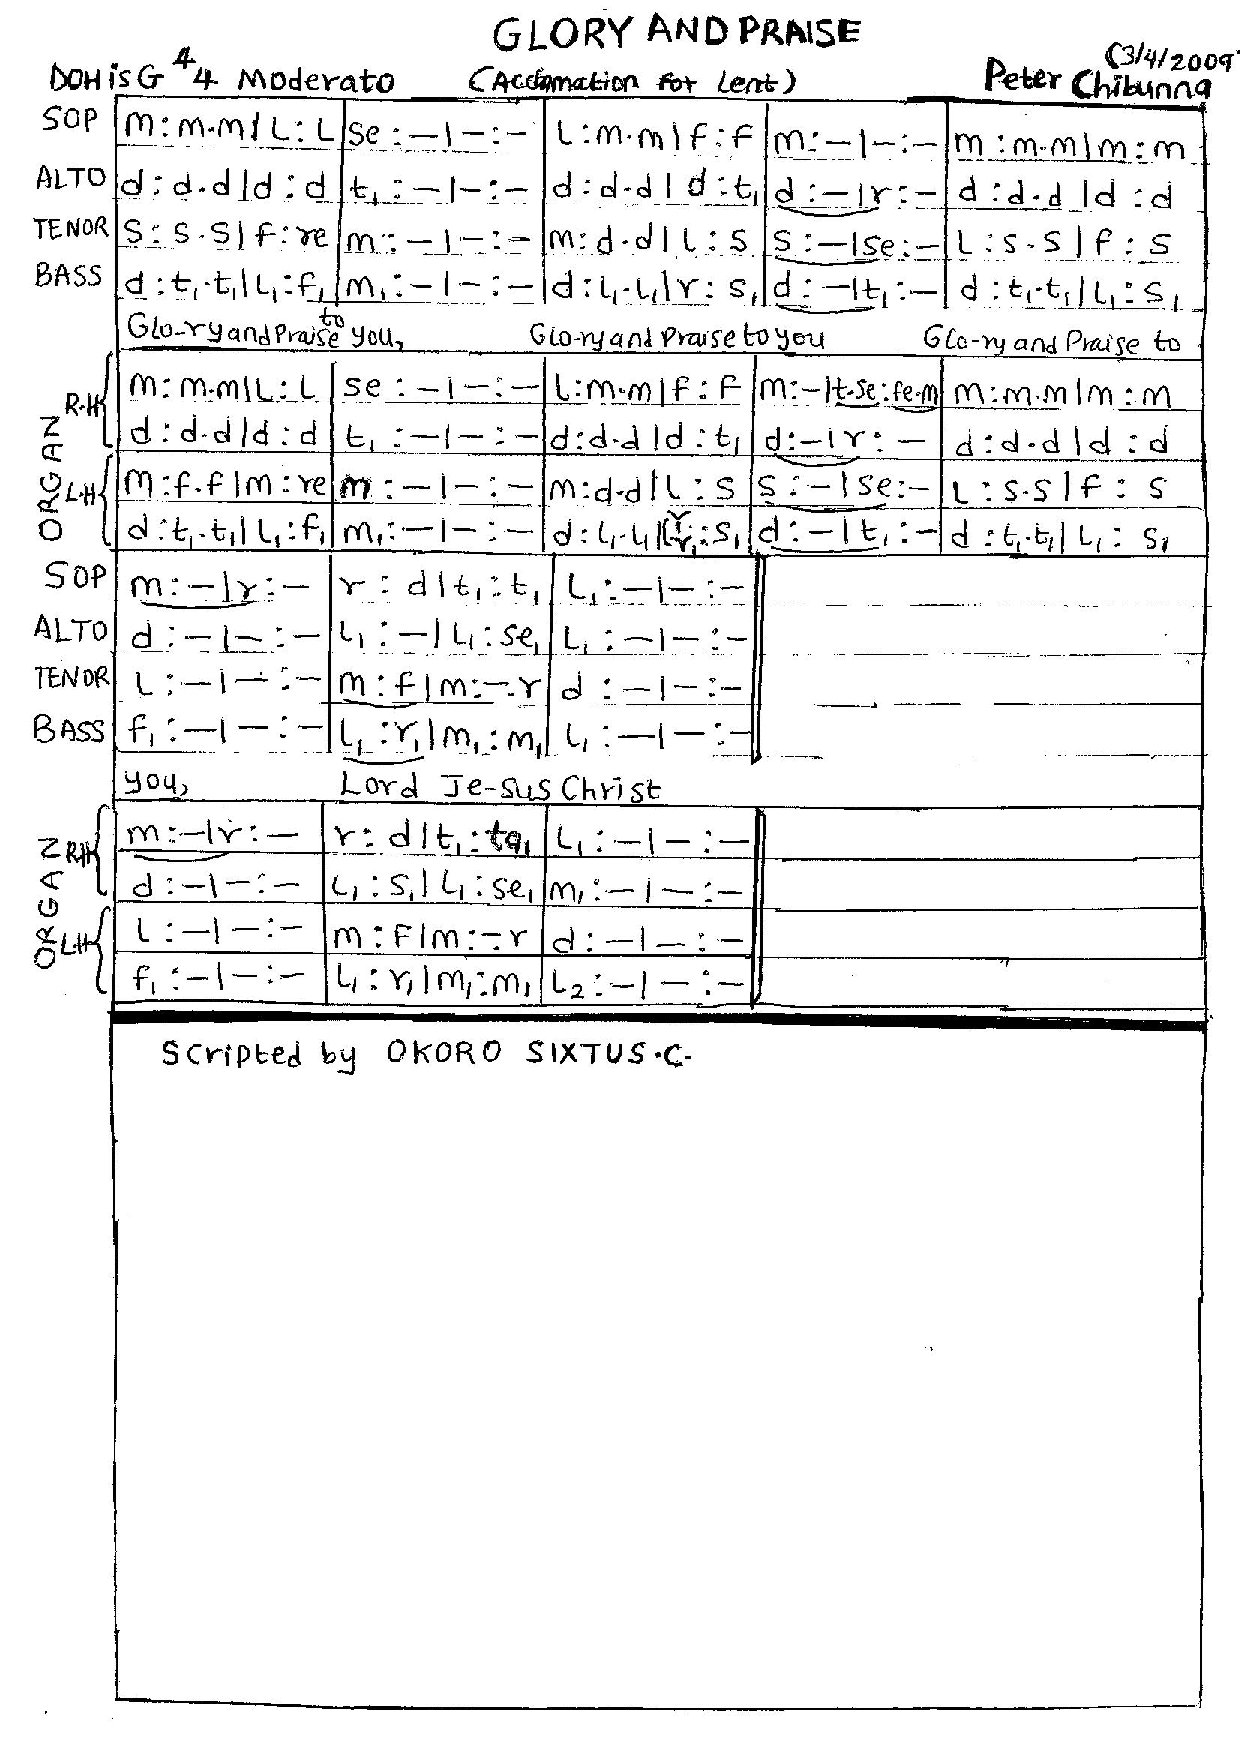 GLORY AND PRAISE
DOH is G 4/4 Moderato (Acclamation for Lent) Peter Chibunna (3/4/2009
SOP m : m.m | L : L | se : – | – : – | L : m.m | f : f | m : – | – : – | m : m.m | m : m
ALTO d : d.d | d : d | t₁ : – | – : – | d : d.d | d : t₁ | d : – | r : – | d : d.d | d : d
TENOR S : s.s | f : re | m : – | – : – | m : d.d | L : s | s : – | se : – | L : s.s | f : s
BASS d : t₁.t₁ | L₁ : f₁ | m₁ : – | – : – | d : L₁.L₁ | r : s₁ | d : – | t₁ : – | d : t₁.t₁ | L₁ : s₁
Glo-ry and Praise to you, Glo-ry and Praise to you Glo-ry and Praise to
ORGAN
R.H m : m.m | L : L | se : – | – : – | L : m.m | f : f | m : – | t.se : fe.m | m : m.m | m : m
d : d.d | d : d | t₁ : – | – : – | d : d.d | d : t₁ | d : – | r : – | d : d.d | d : d
L.H m : f.f | m : re | m : – | – : – | m : d.d | L : s | s : – | se : – | L : s.s | f : s
d : t₁.t₁ | L₁ : f₁ | m₁ : – | – : – | d : L₁.L₁ | r : s₁ | d : – | t₁ : – | d : t₁.t₁ | L₁ : s₁
SOP m : – | r : – | r : d | t₁ : t₁ | L₁ : – | – : –
ALTO d : – | – : – | L₁ : – | L₁ : se₁ | L₁ : – | – : –
TENOR L : – | – : – | m : f | m : –.r | d : – | – : –
BASS f₁ : – | – : – | L₁ : r₁ | m₁ : m₁ | L₁ : – | – : –
you, Lord Je-sus Christ
ORGAN
R.H m : – | r : – | r : d | t₁ : ta₁ | L₁ : – | – : –
d : – | – : – | L₁ : s₁ | L₁ : se₁ | m₁ : – | – : –
L.H L : – | – : – | m : f | m : –.r | d : – | – : –
f₁ : – | – : – | L₁ : r₁ | m₁ : m₁ | L₂ : – | – : –
Scripted by OKORO SIXTUS.C.